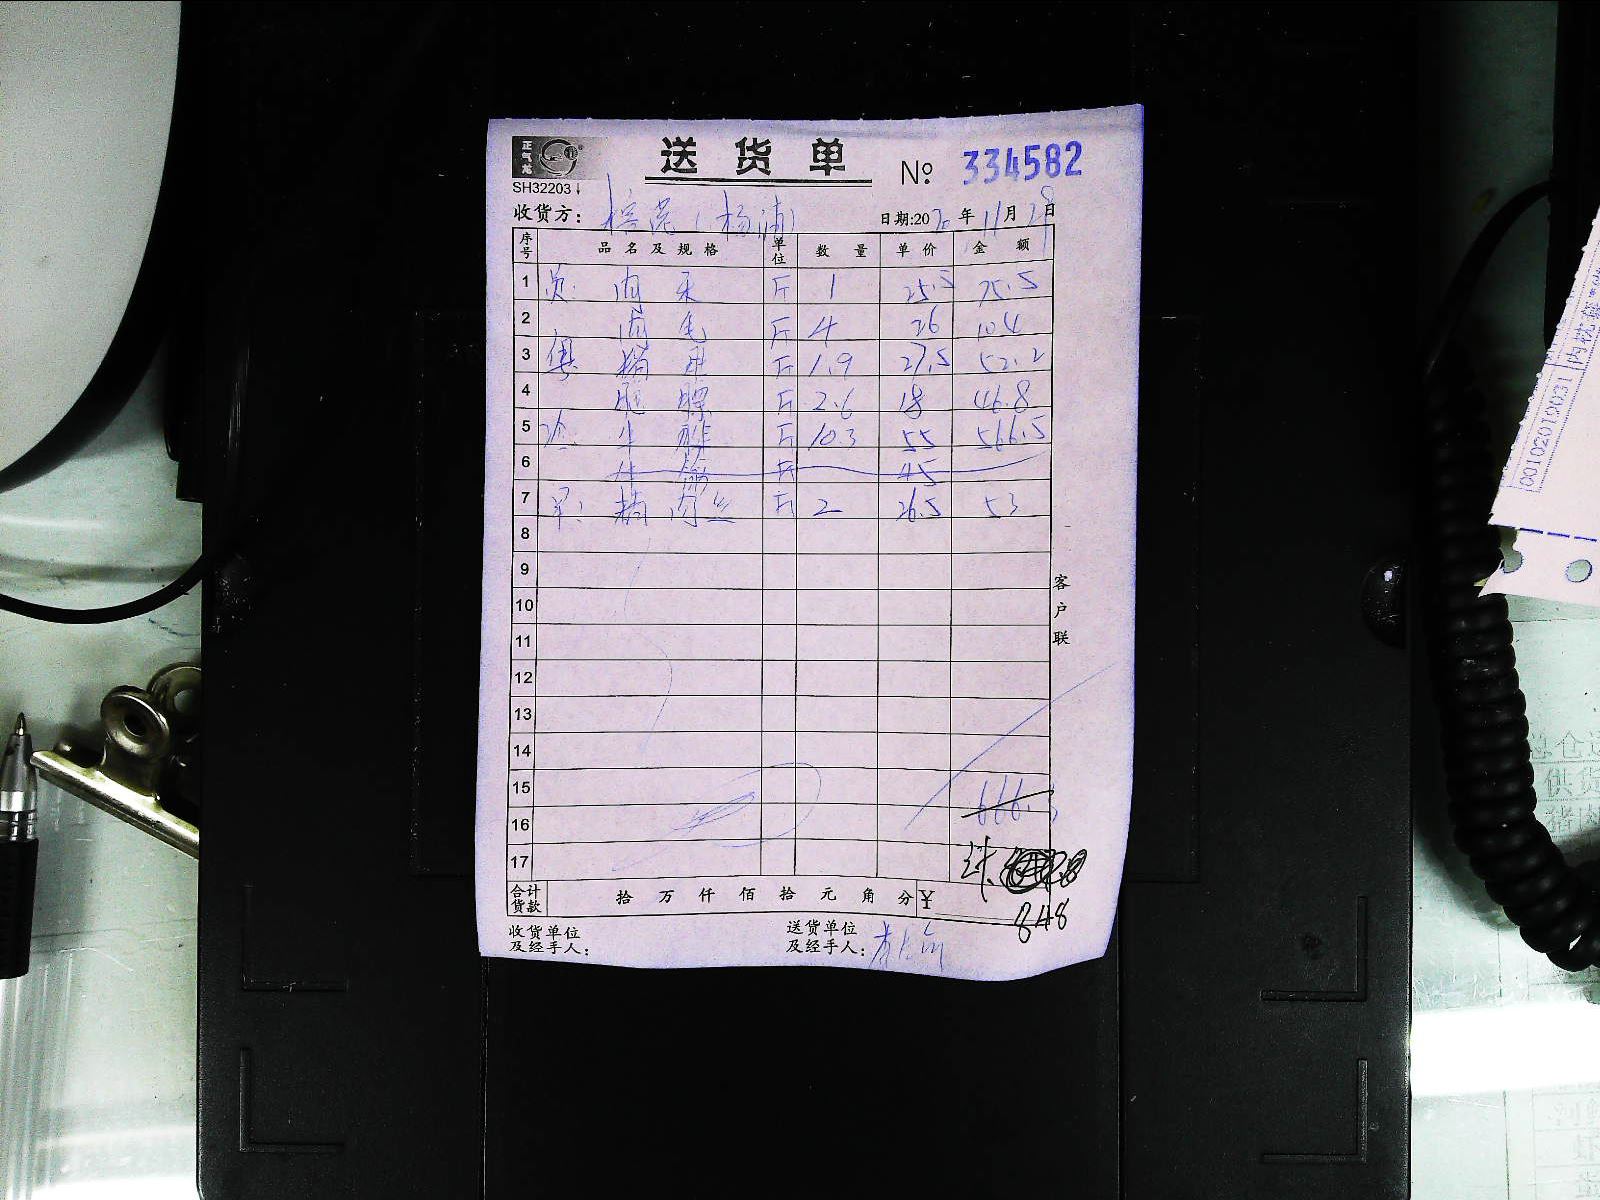 正气龙
送货单 № 334582
SH32203
收货方： (杨浦) 日期:2020年11月28日
序号 品名及规格 单位 数量 单价 金额
1 肉 斤 1 25.5 25.5
2 肉 斤 4 26 104
3 粤 斤 1.9 27.5 52.2
4 斤 2.6 18 46.8
5 冷 牛 斤 10.3 55 566.5
6 牛 斤 45
7 早: 精肉丝 斤 2 26.5 53
8
9
10
11
12
13
14
15
16
17 计.
合计货款 拾 万 仟 佰 拾 元 角 分 ¥
848
收货单位及经手人：
送货单位及经手人：
客户联
00102010031
供货